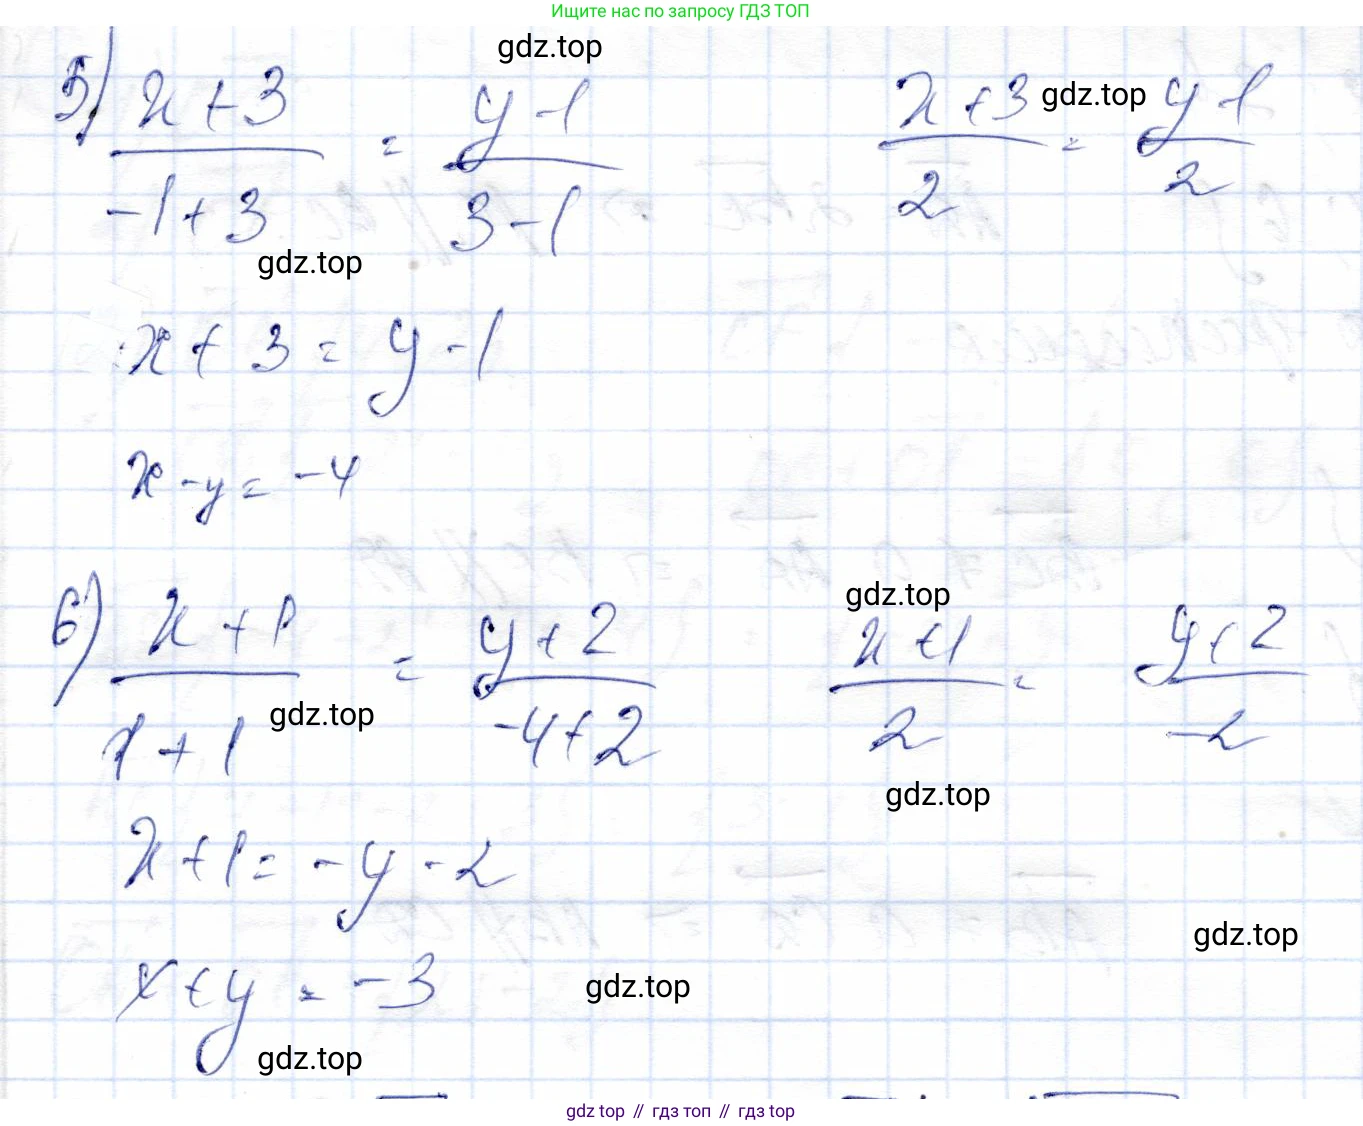 Ищите нас по запросу ГДЗ ТОП
gdz.top
5) x+3/-1+3 = y-1/3-1    x+3/2 = y-1/2
gdz.top
gdz.top
x+3=y-1
x-y=-4
gdz.top
6) x+1/1+1 = y+2/-4+2    x+1/2 = y+2/-2
gdz.top
gdz.top
x+1=-y-2
gdz.top
x+y=-3
gdz.top
gdz.top
gdz top // гдз топ // гдз top